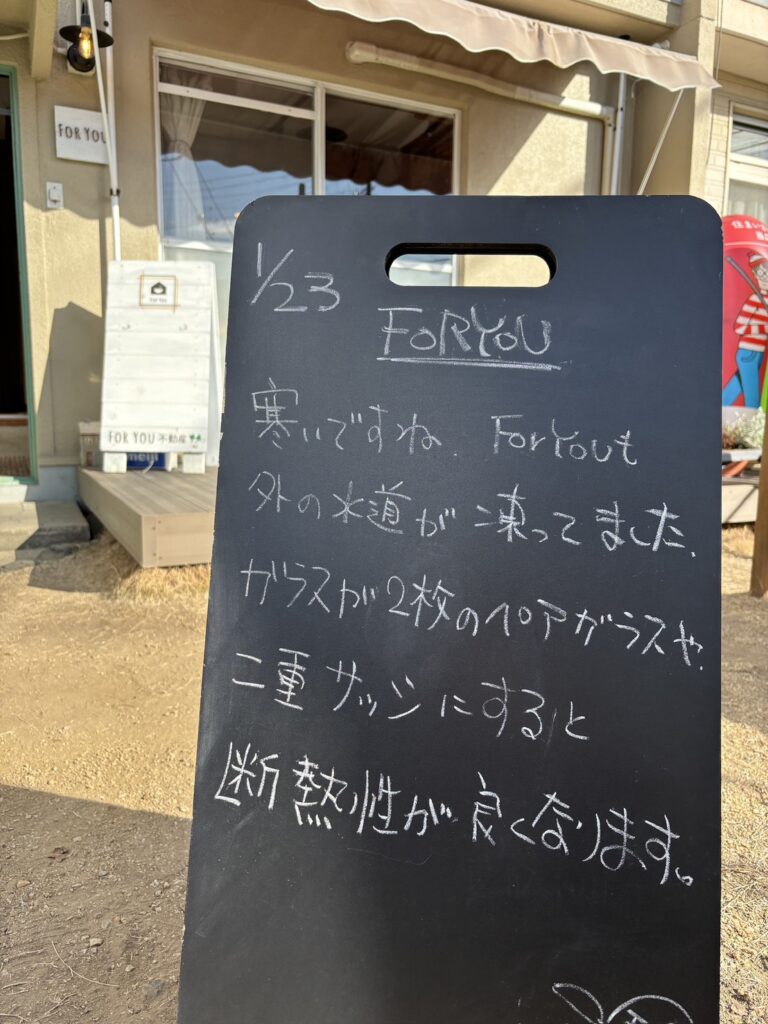 FOR YOU
FOR YOU 不動産
meiji
1/23
FORYOU
寒いですね. ForYouも
外の水道が凍ってました.
ガラスが2枚のペアガラスや.
二重サッシにすると
断熱性が良くなります。